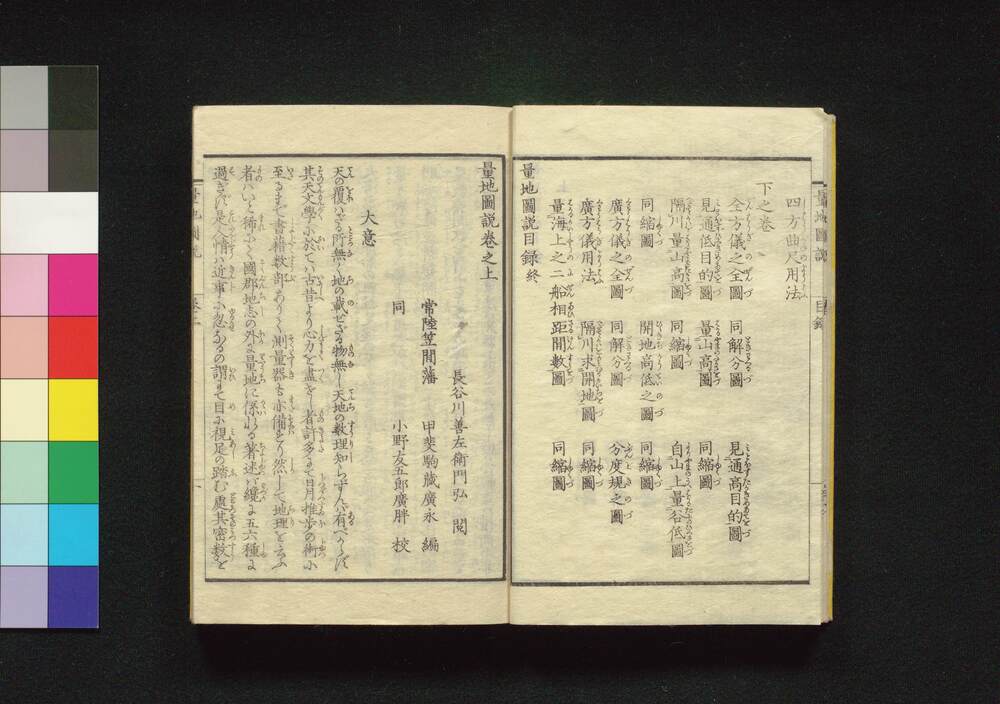 四方曲尺用法
下之巻
全方儀之全圖 同解分圖 見通高目的圖
見通低目的圖 量山高圖 同縮圖
隔川量山高圖 同縮圖 自山上量谷低圖
同縮圖 開地高低之圖 同縮圖
廣方儀之全圖 同解分圖 分度規之圖
廣方儀用法 隔川求開地圖 同縮圖
量海上之二船相距間數圖 同縮圖
量地圖説目録終
量地圖説巻之上
長谷川善左衛門弘 閲
常陸笠間藩 甲斐駒蔵廣永 編
同 小野友五郎廣胖 校
大意
天の覆ハざる所無く地の載せざる物無し天地の数理知らずんバ有べからず
其天文學に於てハ古昔より心力を盡せし者許多にて日月推歩の術に
至るまで書籍数部ありて測量器も亦備れり然して地理を云ふ
者ハいと稀にて國郡地志の外は量地に係れる著述ハ纔に五六種に
過ぎず是人情ハ近事に忽なるの謂にて目に視足の踏む處其密数を
量地圖説
目録